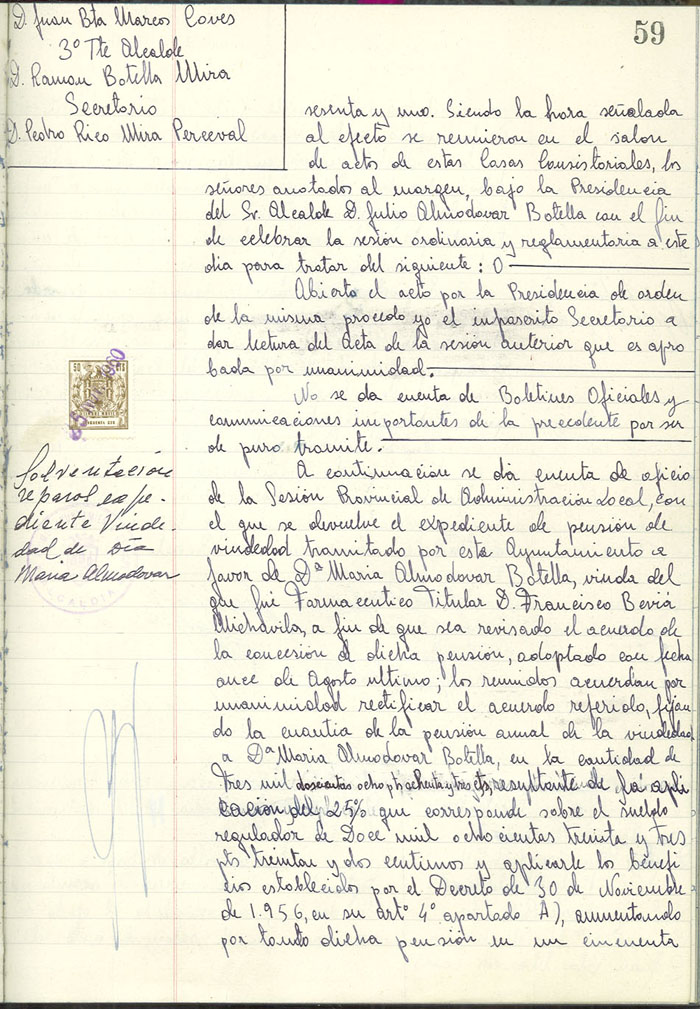 59
D. Juan Bta Marcos Coves
3º Tte Alcalde
D. Ramon Botella Mira
Secretario
D. Pedro Rico Mira Perceval
sesenta y uno. Siendo la hora señalada
al efecto se reunieron en el salon
de actos de estas Casas Consistoriales, los
señores anotados al margen, bajo la Presidencia
del Sr. Alcalde D. Julio Almodovar Botella con el fin
de celebrar la sesión ordinaria y reglamentaria a este
dia para tratar del siguiente: O
Abierto el acto por la Presidencia de orden
de la misma procedo yo el infrascrito Secretario a
dar lectura del Acta de la sesión anterior que es apro
bada por unanimidad.
No se da cuenta de Boletines Oficiales y
comunicaciones importantes de la precedente por ser
de puro tramite.
A continuación se dá cuenta de oficio
de la Sesión Provincial de Administración Local, con
el que se devuelve el expediente de pensión de
viudedad tramitado por este Ayuntamiento a
favor de Dª Maria Almodovar Botella, viuda del
que fué Farmaceutico Titular D. Francisco Beviá
Michavila, a fin de que sea revisado el acuerdo de
la concesión de dicha pensión, adoptado con fecha
once de Agosto ultimo; los reunidos acuerdan por
unanimidad rectificar el acuerdo referido, fijan
do la cuantia de la pensión anual de la viudedad
a Dª Maria Almodovar Botella, en la cantidad de
Tres mil doscientas ocho pts ochenta y tres cts, resultante de la apli
cación del 25% que corresponde sobre el sueldo
regulador de Doce mil ochocientas treinta y tres
pts treinta y dos centimos y aplicarle los benefi
cios establecidos por el Decreto de 30 de Noviembre
de 1.956, en su artº 4º apartado A), aumentando
por tanto dicha pensión en un cincuenta
50 CTS
Solventación
reparos expe-
diente Viude-
dad de Dña
Maria Almodovar
ALCALDIA